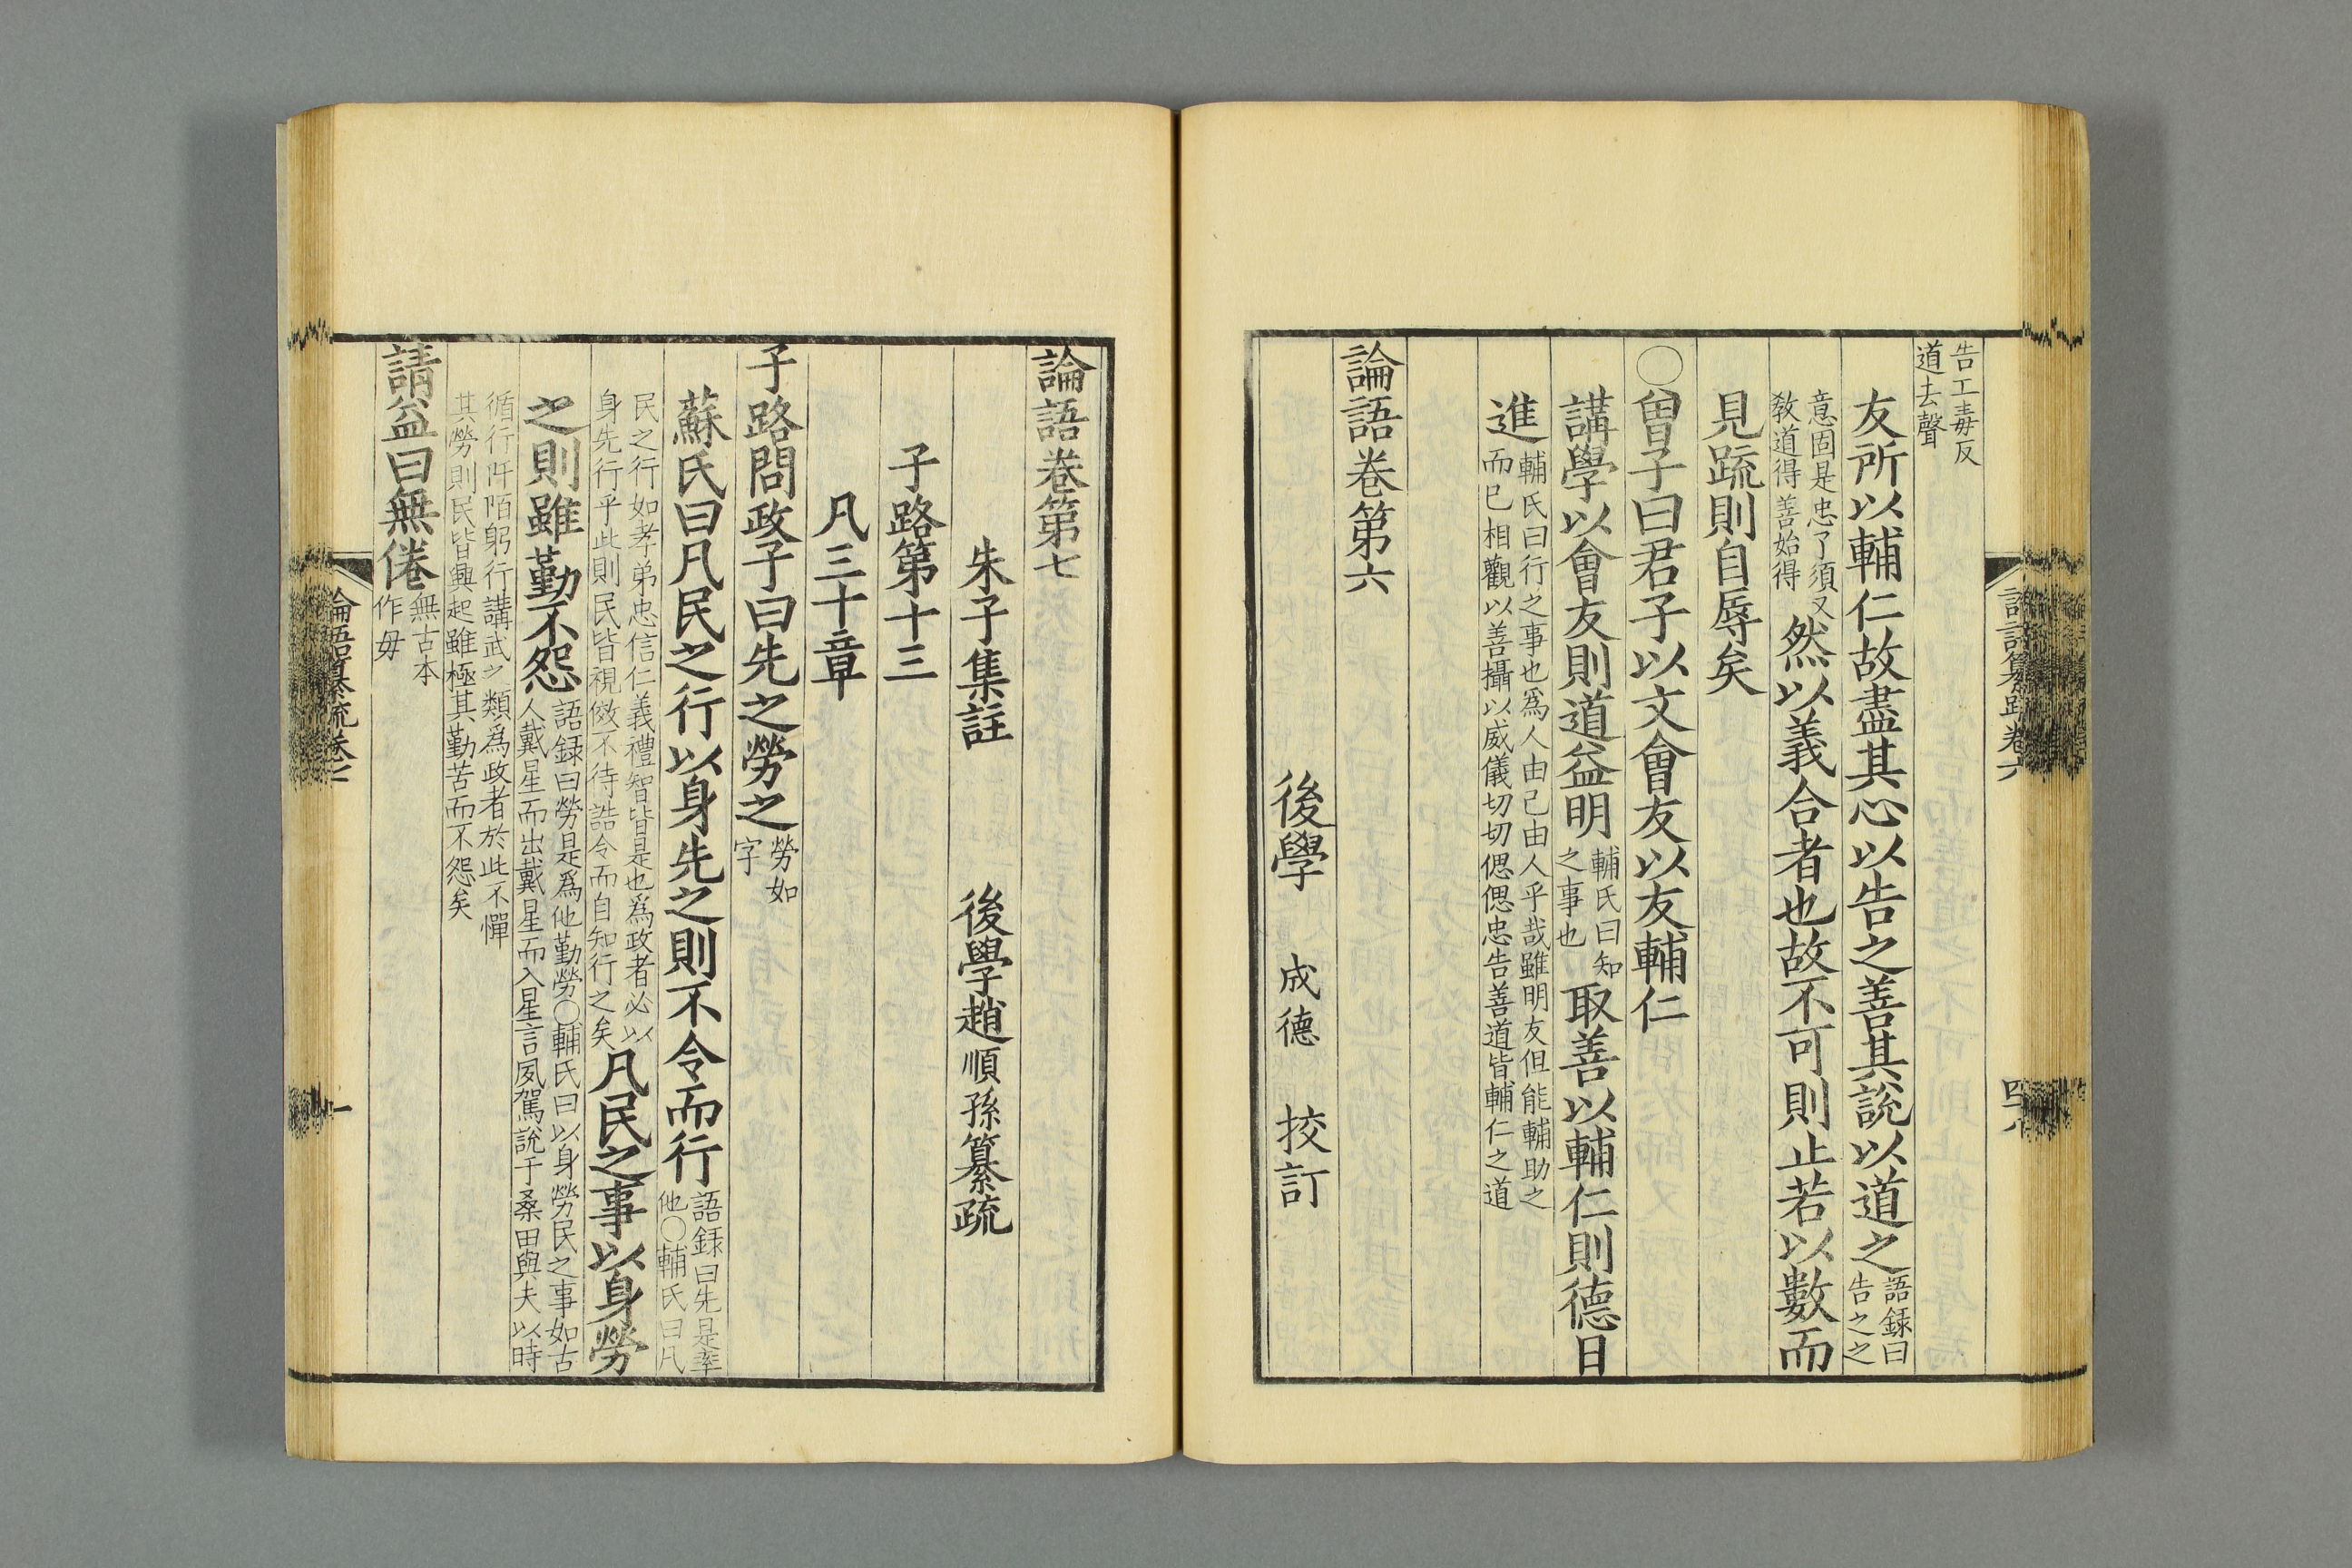 告工毒反
道去聲
友所以輔仁故盡其心以告之善其說以道之
語録曰
告之之
意固是忠了須又
教道得善始得
然以義合者也故不可則止若以數而
見疏則自辱矣
○曾子曰君子以文會友以友輔仁
講學以會友則道益明
輔氏曰知
之事也
取善以輔仁則德日
進
輔氏曰行之事也爲人由己由人乎哉雖明友但能輔助之
而已相觀以善攝以威儀切切偲偲忠告善道皆輔仁之道
論語卷第六
後學 成德 挍訂
論語卷第七
朱子集註 後學趙順孫纂疏
子路第十三
凡三十章
子路問政子曰先之勞之
勞如
字
蘇氏曰凡民之行以身先之則不令而行
語録曰先是率
他○輔氏曰凡
民之行如孝弟忠信仁義禮智皆是也爲政者必以
身先行乎此則民皆視傚不待誥令而自知行之矣
凡民之事以身勞
之則雖勤不怨
語録曰勞是爲他勤勞○輔氏曰以身勞民之事如古
人戴星而出戴星而入星言夙駕說于桑田與夫以時
循行阡陌躬行講武之類爲政者於此不憚
其勞則民皆興起雖極其勤苦而不怨矣
請益曰無倦
無古本
作毋
論語纂疏卷七
一